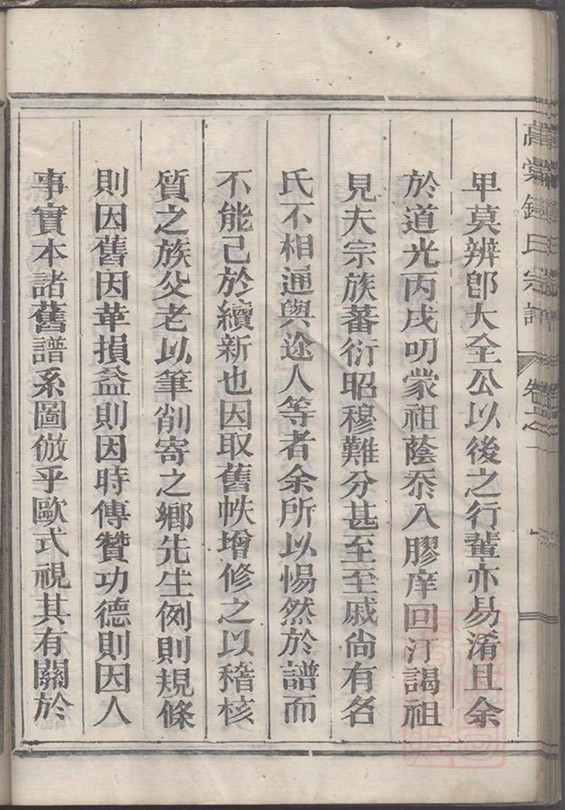 卑莫辨卽大全公以後之行輩亦易淆且余
於道光丙戌叨蒙祖蔭忝入膠庠回汀謁祖
見夫宗族蕃衍昭穆難分甚至至戚尙有名
氏不相通與途人等者余所以惕然於譜而
不能已於續新也因取舊帙增修之以稽核
質之族父老以筆削寄之鄉先生例則規條
則因舊因革損益則因時傳贊功德則因人
事實本諸舊譜系圖倣乎歐式視其有關於